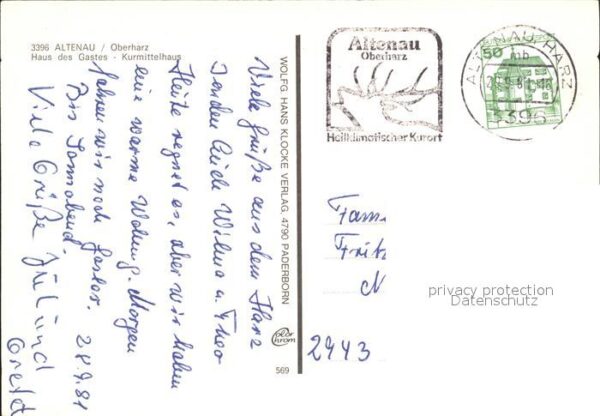 3396 ALTENAU / Oberharz
Haus des Gastes - Kurmittelhaus
Viele Grüße aus dem Harz
senden Euch Wilma u. Theo
Heute regnet es, aber wir haben
eine warme Wohnung. Morgen
fahren wir nach Goslar.
Bis Sonnabend. 28.9.81
Viele Grüße
und
WOLFG. HANS KLOCKE VERLAG, 4790 PADERBORN
color
chrom
569
Altenau
Oberharz
Heilklimatischer Kurort
ALTENAU, HARZ
mb
3396
50
Fam.
Fritz
N
2943
privacy protection
Datenschutz